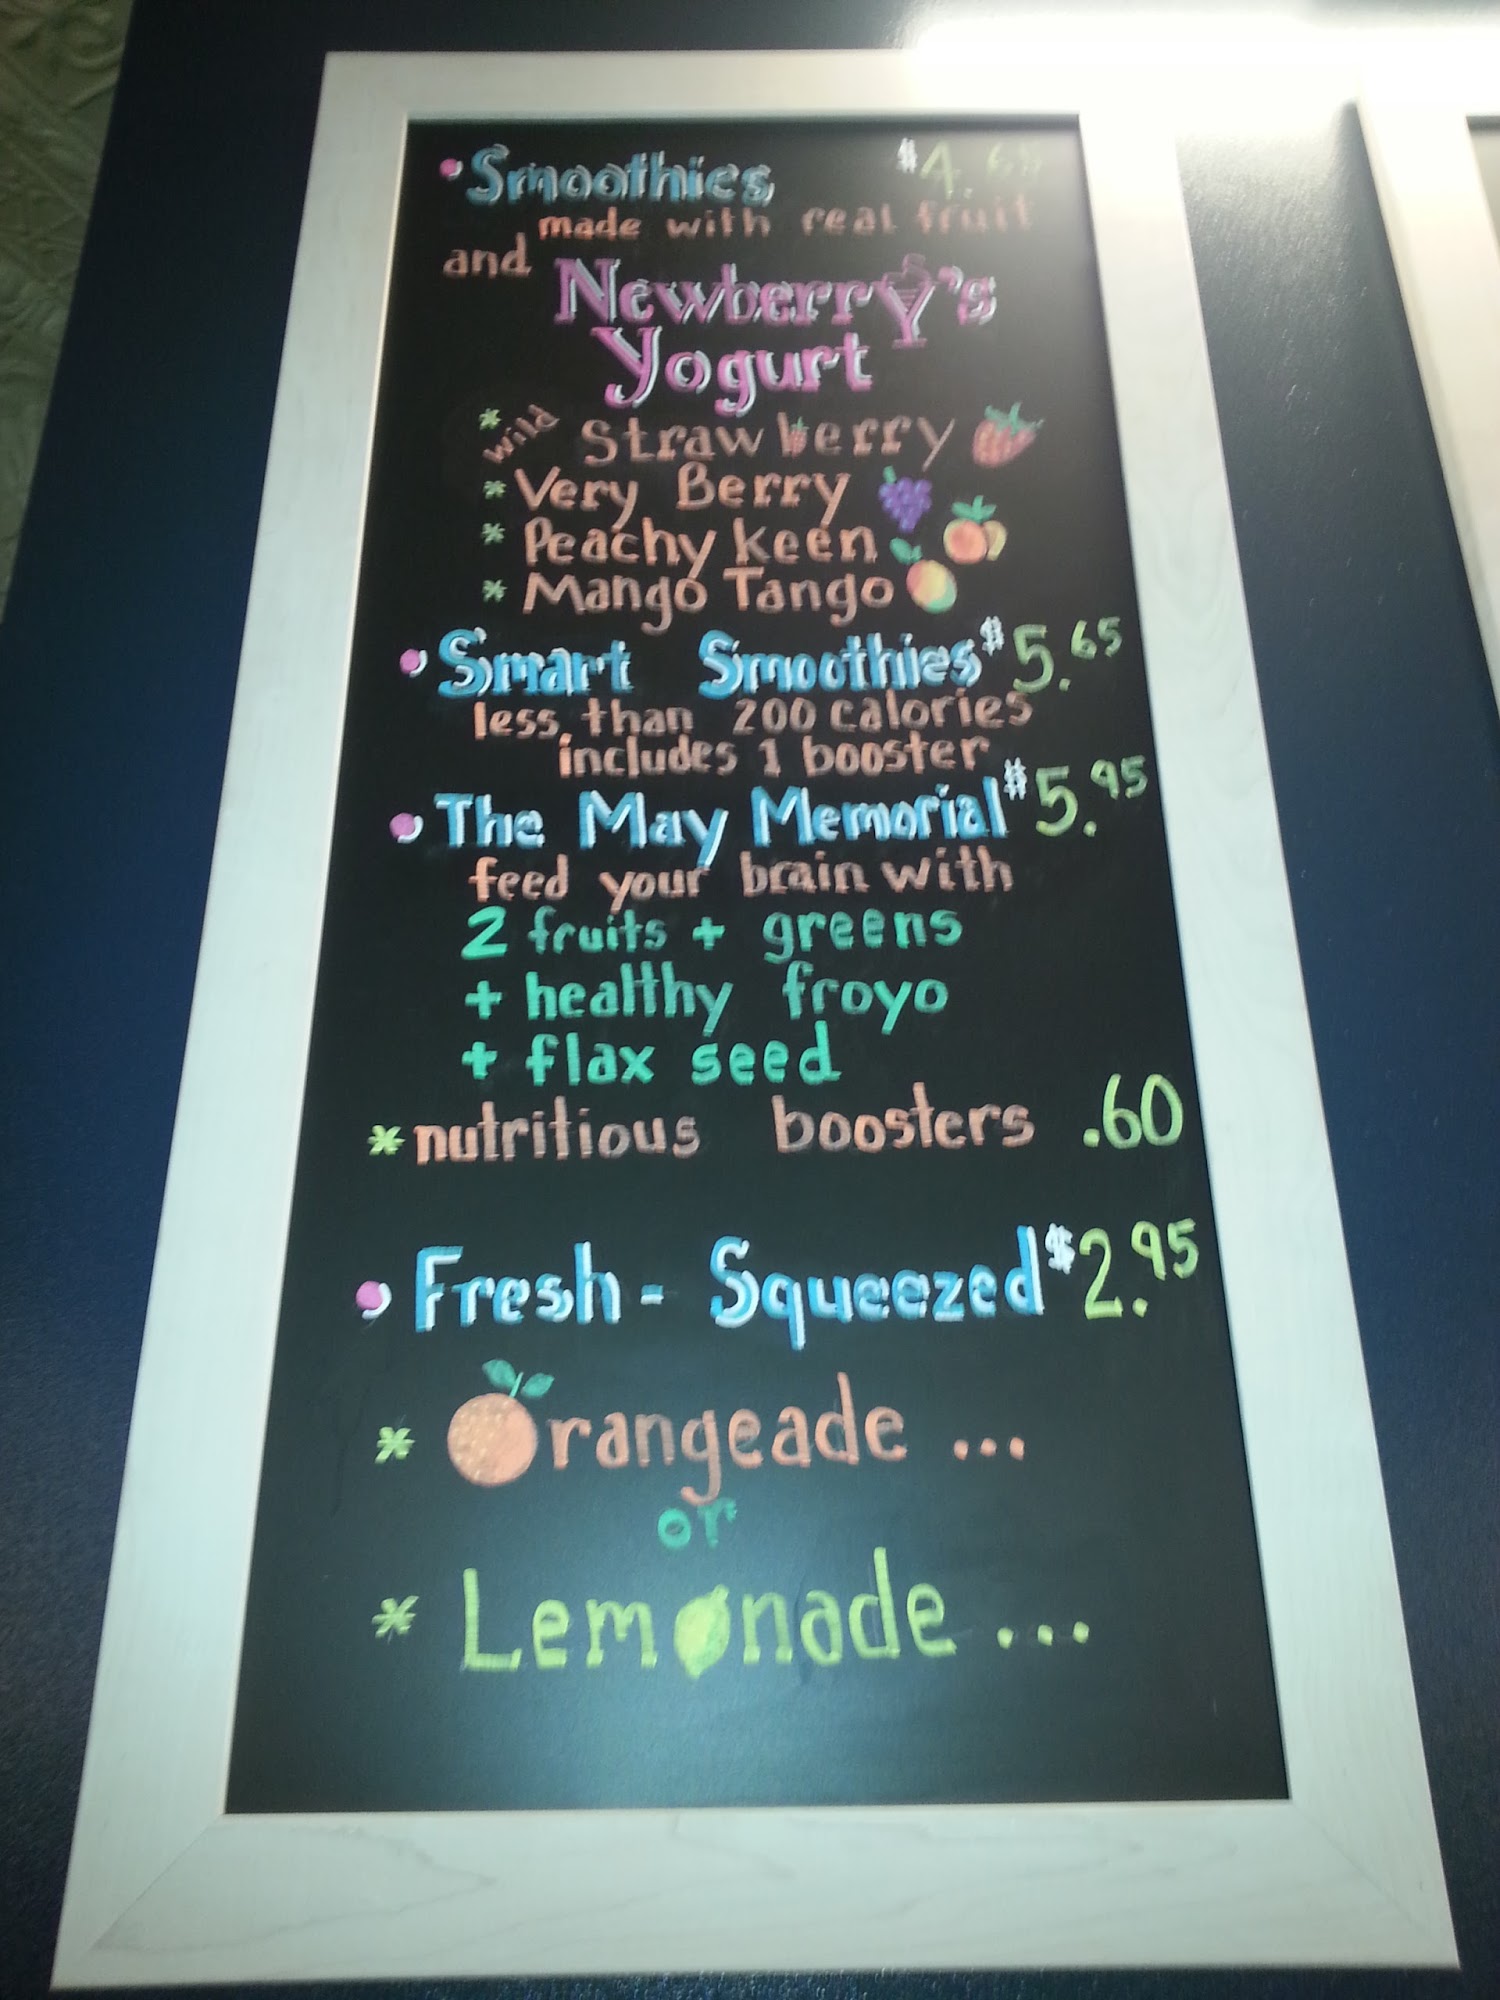 Smoothies $4.
made with real fruit
and Newberry's
Yogurt
* wild strawberry
* Very Berry
* Peachy keen
* Mango Tango
Smart Smoothies $5.65
less than 200 calories
includes 1 booster
The May Memorial $5.95
feed your brain with
2 fruits + greens
+ healthy froyo
+ flax seed
* nutritious boosters .60
Fresh-Squeezed $2.95
* Orangeade ...
or
* Lemonade ...